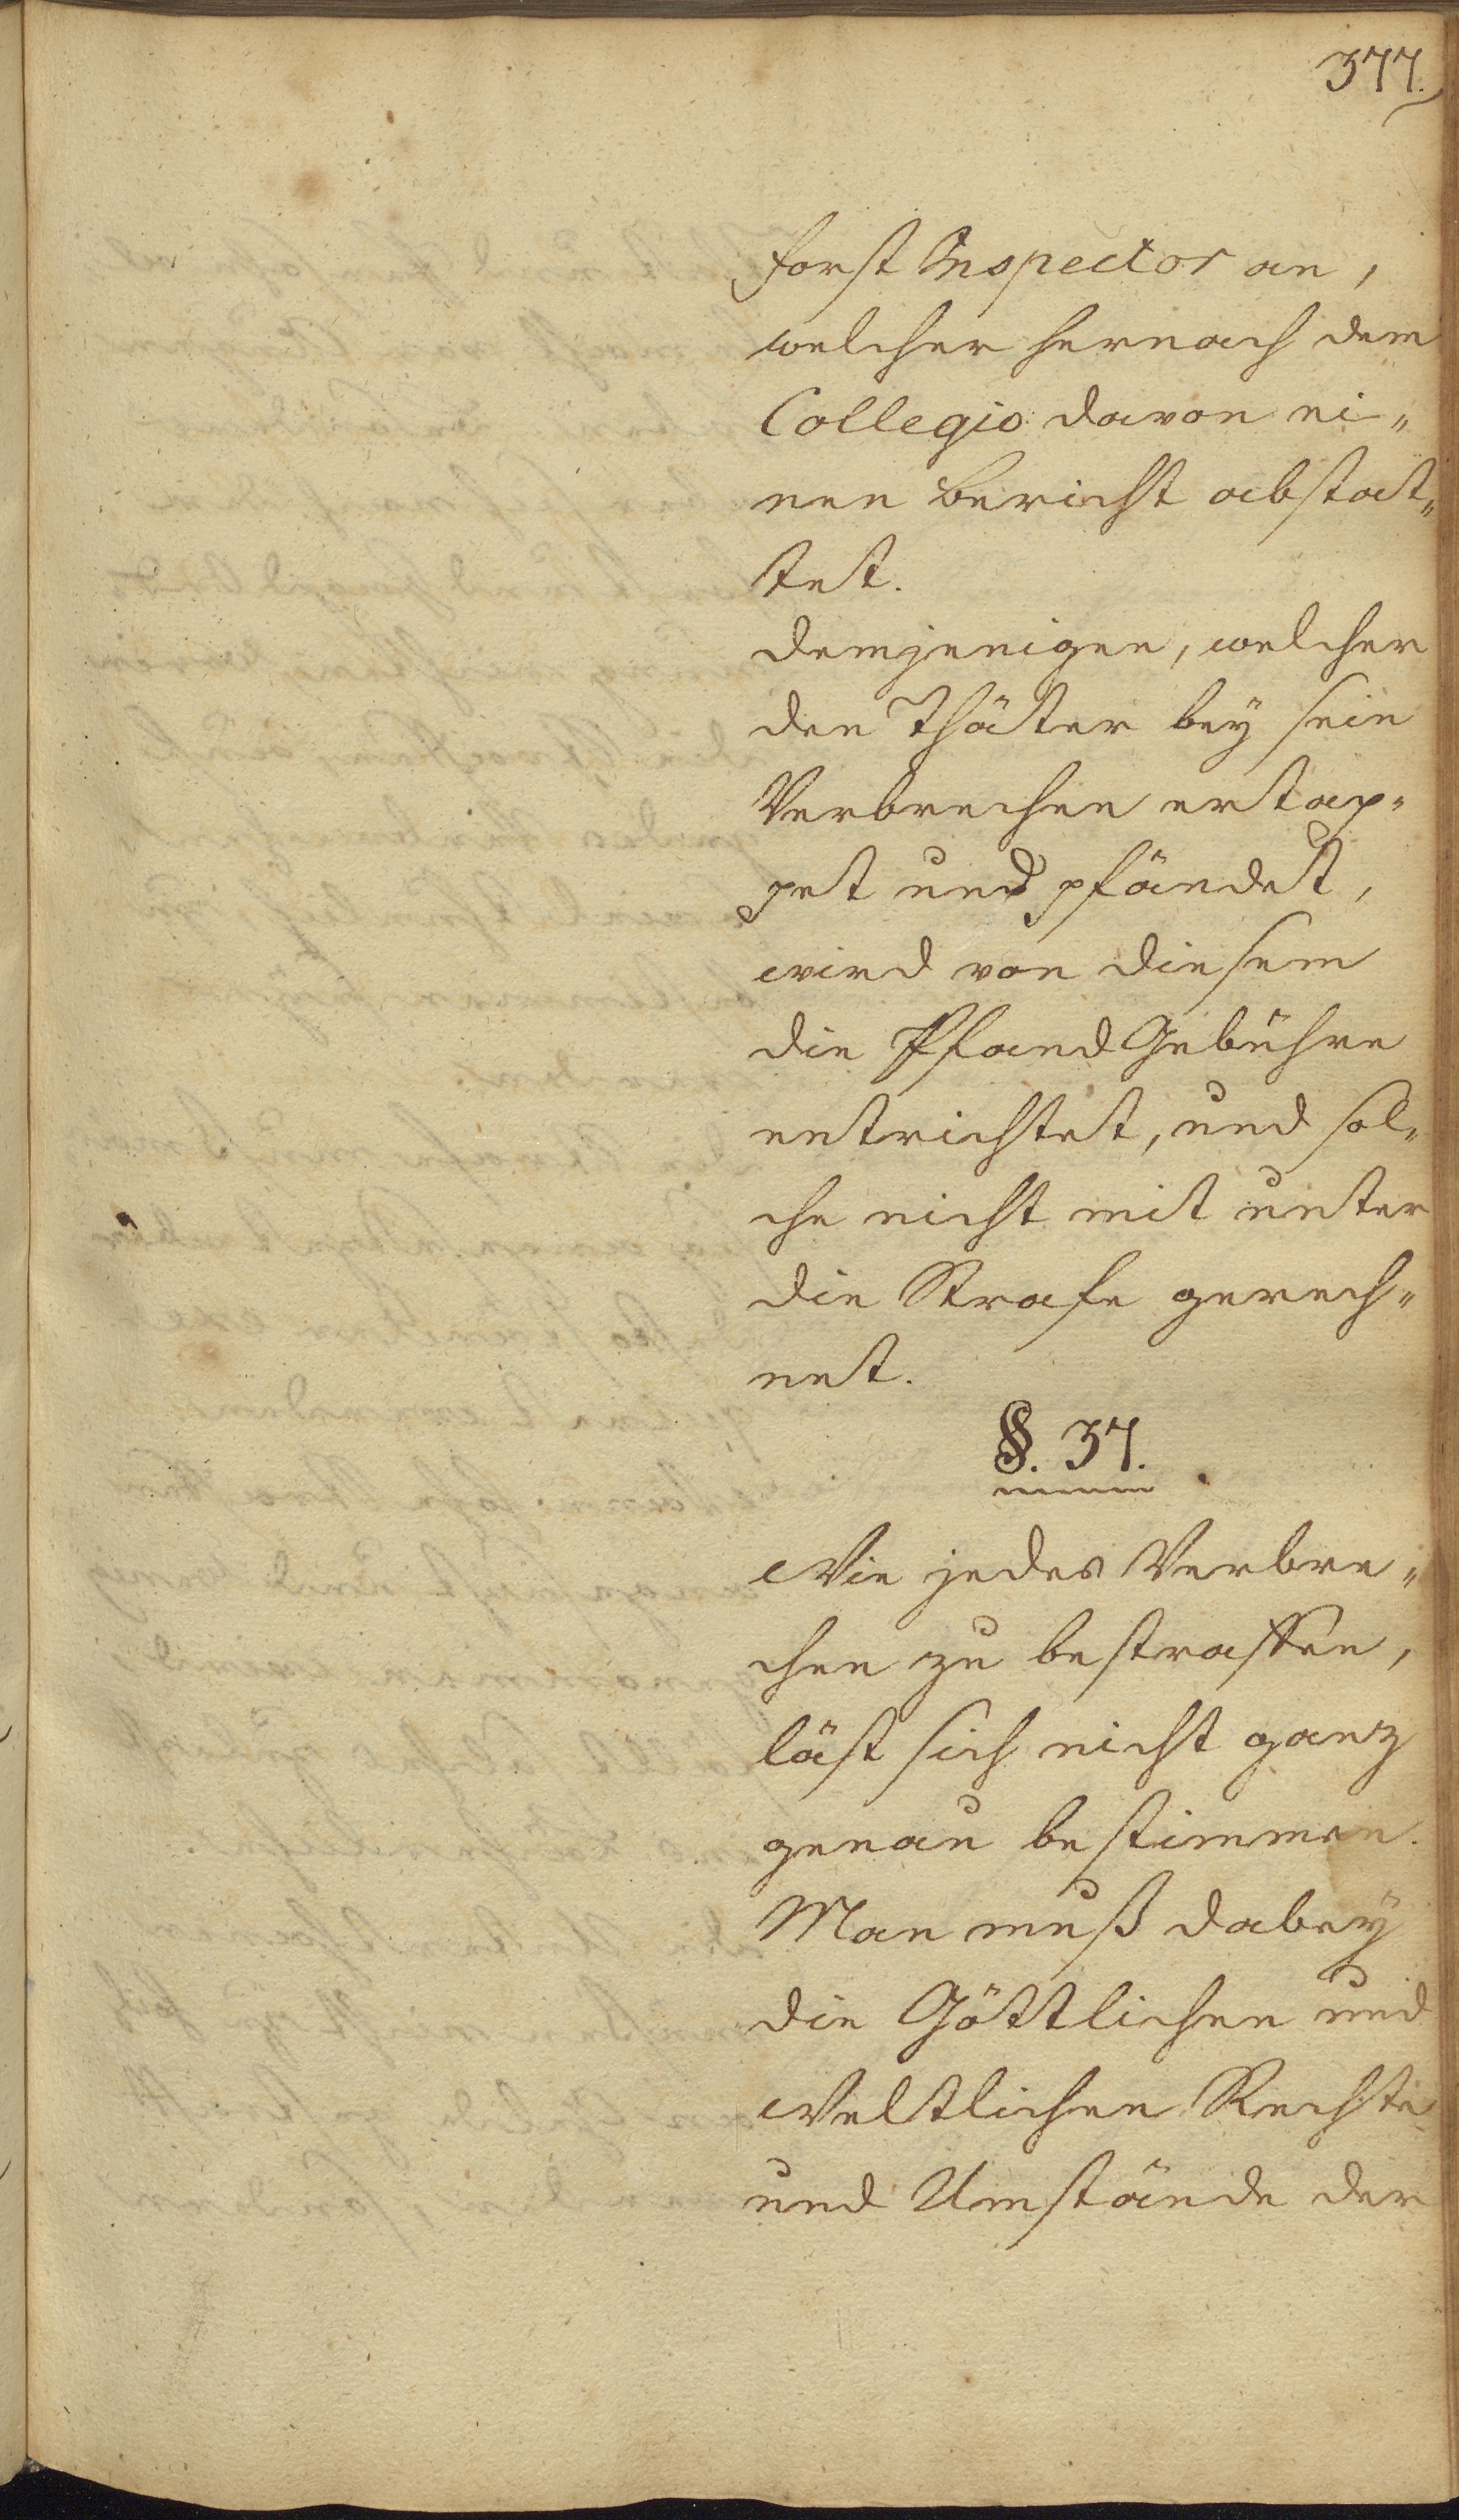 377.
Forst Inspector an,
welcher hernach dem
Collegio davon ei„
nen Bericht abstat„
tet.
demjenigen, welcher
den Thäter bey sein
Verbrechen ertap„
pet und pfändet,
wird von diesem
die Pfand Gebühren
entrichtet, und sol„
che nicht mit unter
die Strafe gerech„
net.
§. 37.
Wie jedes Verbre„
chen zu bestraffen,
läst sich nicht ganz
genau bestimmen.
Man muß dabey
die Göttlichen und
Weltlichen Rechte
und Umstände der